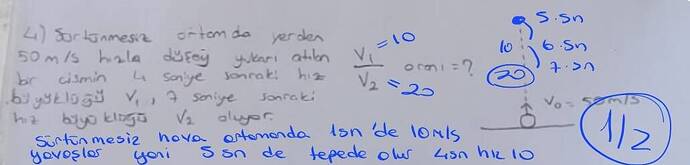 4) Sürtünmesiz ortamda yerden
50 m/s hızla düşey yukarı atılan
bir cismin 4 saniye sonraki hız
büyüklüğü V₁, 7 saniye sonraki
hız büyüklüğü V₂ oluyor.
V₁ = 10
V₂ = 20
oranı = ?
5.sn
10 6.sn
20 7.sn
V₀ = 50 m/s
1/2
Sürtünmesiz hava ortamında 1sn'de 10 m/s
yavaşlar yani 5 sn de tepede olur 4sn hız 10